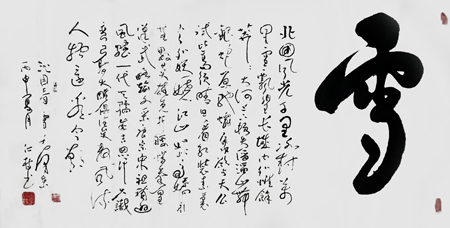 雪
北国风光千里冰封万
里雪飘望长城内外惟余
莽莽大河上下顿失滔滔山舞
银蛇原驰蜡象欲与天公
试比高须晴日看红装素裹
分外妖娆江山如此多娇引
无数英雄竞折腰惜秦皇汉
武略输文采唐宗宋祖稍逊
风骚一代天骄成吉思汗只识
弯弓射大雕俱往矣数风流
人物还看今朝
沁园春雪
丙申夏月